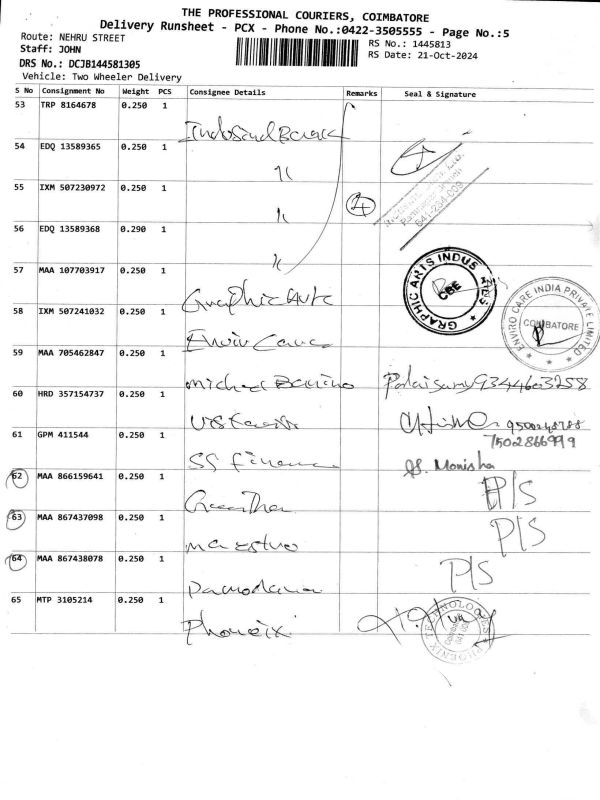 THE PROFESSIONAL COURIERS, COIMBATORE
Delivery Runsheet - PCX - Phone No.:0422-3505555 - Page No.:5
Route: NEHRU STREET
RS No.: 1445813
Staff: JOHN
RS Date: 21-Oct-2024
DRS No.: DCJB144581305
Vehicle: Two Wheeler Delivery
S No Consignment No Weight PCS Consignee Details Remarks Seal & Signature
53 TRP 8164678 0.250 1
IndusInd Bank
54 EDQ 13589365 0.250 1
55 IXM 507230972 0.250 1
641-234-009
4
56 EDQ 13589368 0.290 1
57 MAA 107703917 0.250 1
Graphic Arts
GRAPHIC ARTS INDUSTRIES
CBE
58 IXM 507241032 0.250 1
Enviro Care
ENVIRO CARE INDIA PRIVATE LIMITED
COIMBATORE
59 MAA 705462847 0.250 1
Michael
60 HRD 357154737 0.250 1
61 GPM 411544 0.250 1
7502866999
SS Finance
S. Monisha
62 MAA 866159641 0.250 1
P/S
63 MAA 867437098 0.250 1
maestro
P/S
64 MAA 867438078 0.250 1
P/S
Damodara
65 MTP 3105214 0.250 1
Phoneix
PHOENIX TECHNOLOGIES